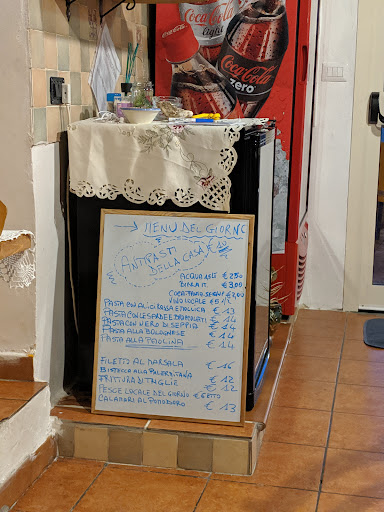 Coca-Cola
light
Coca-Cola
zero
→ MENU DEL GIORNO
ANTIPASTI
DELLA CASA
ACQUA 1 LT € 2,50
BIRRA IT. € 3,00
€ 2,00
VINO LOCALE € 5
PASTA CON ALICI RASSE E MOLLICA € 13
PASTA CON € 14
PASTA CON NERO DI SEPPIA € 14
PASTA ALLA BOLOGNESE € 14
PASTA ALLA PAOLINA € 14
FILETTO AL MARSALA € 16
BISTECCA ALLA PALERMITANA € 12
FRITTURA DI TRIGLIE € 12
PESCE LOCALE DEL GIORNO € ETTO
CALAMARI AL POMODORO € 13